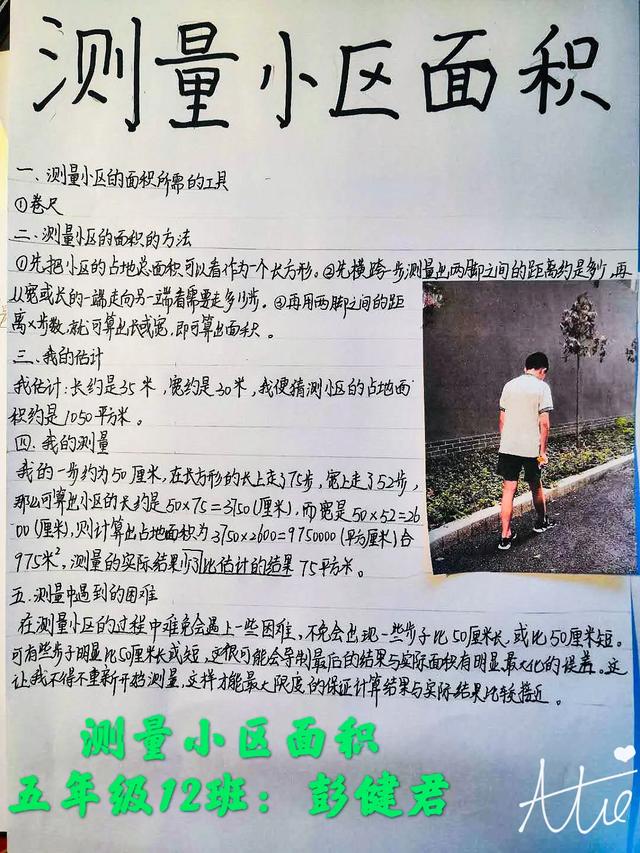 测量小区面积
一、测量小区的面积所需的工具
①卷尺
二、测量小区的面积的方法
①先把小区的占地总面积可以看作为一个长方形。②先横跨一步测量出两脚之间的距离约是多少,再
从宽或长的一端走向另一端看需要走多少步。④再用两脚之间的距
离×步数,就可算出长或宽,即可算出面积。
三、我的估计
我估计:长约是35米,宽约是30米,我便猜测小区的占地面
积约是1050平方米。
四、我的测量
我的一步约为50厘米,在长方形的长上走了75步,宽上走了52步,
那么可算出小区的长约是50×75=3750(厘米),而宽是50×52=26
00(厘米),则计算出占地面积为3750×2600=9750000(平方厘米)合
975米²,测量的实际结果少了比估计的结果75平方米。
五、测量中遇到的困难
在测量小区的过程中难免会遇上一些困难,不免会出现一些步子比50厘米长,或比50厘米短。
可有些步子明显比50厘米长或短,这很可能会导制最后的结果与实际面积有明显最大化的误差。这
让我不得不重新开始测量,这样才能最大限度的保证计算结果与实际结果比较接近。
测量小区面积
五年级12班:彭健君